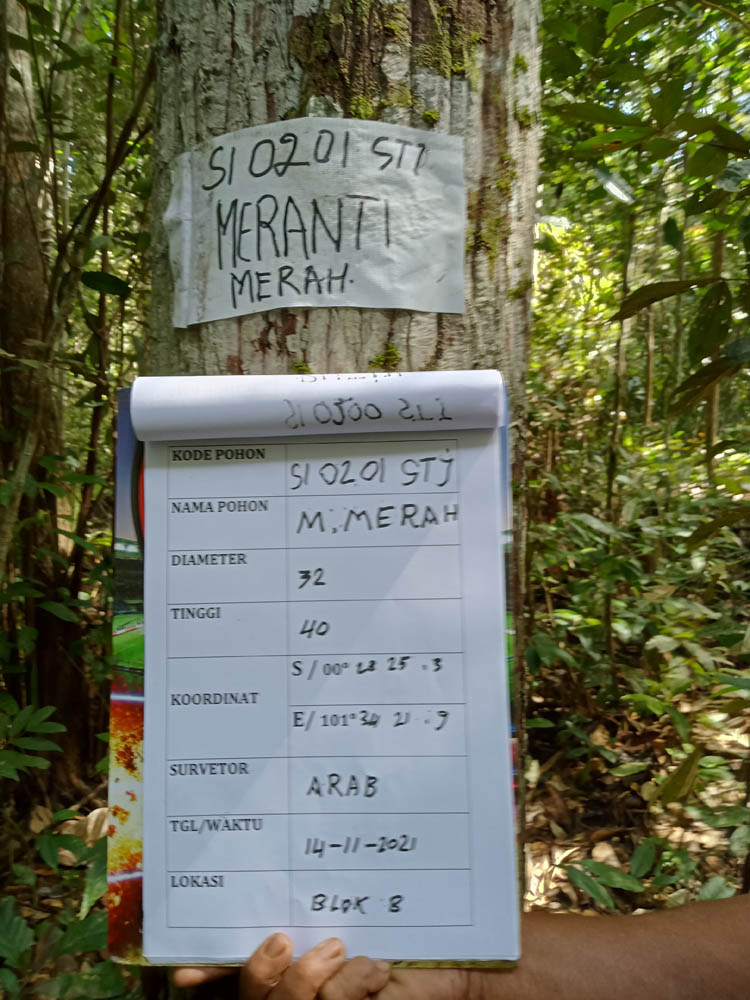 SI 0201 STJ
MERANTI
MERAH.
SI 0200 STJ
KODE POHON SI 0201 STJ
NAMA POHON M. MERAH
DIAMETER 32
TINGGI 40
KOORDINAT S / 00° 28 25 . 3
E/ 101° 34 21 . 9
SURVETOR ARAB
TGL/WAKTU 14-11-2021
LOKASI BLOK B